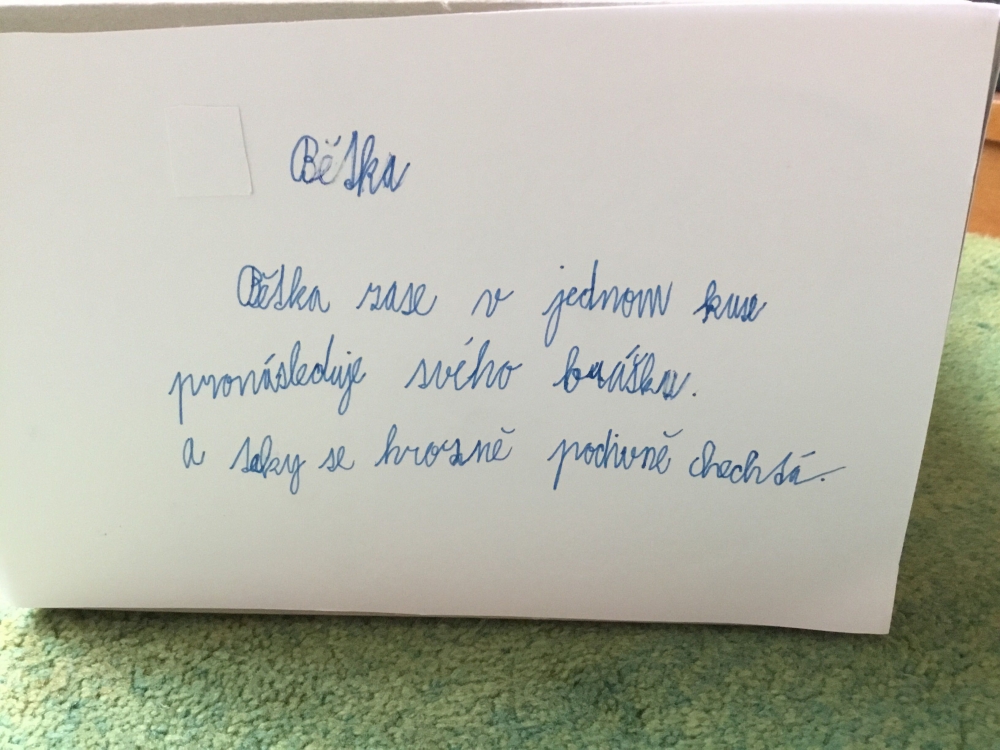 Bětka
Bětka zase v jednom kuse
pronásleduje svého brášku.
a taky se hrozně podivně chechtá.